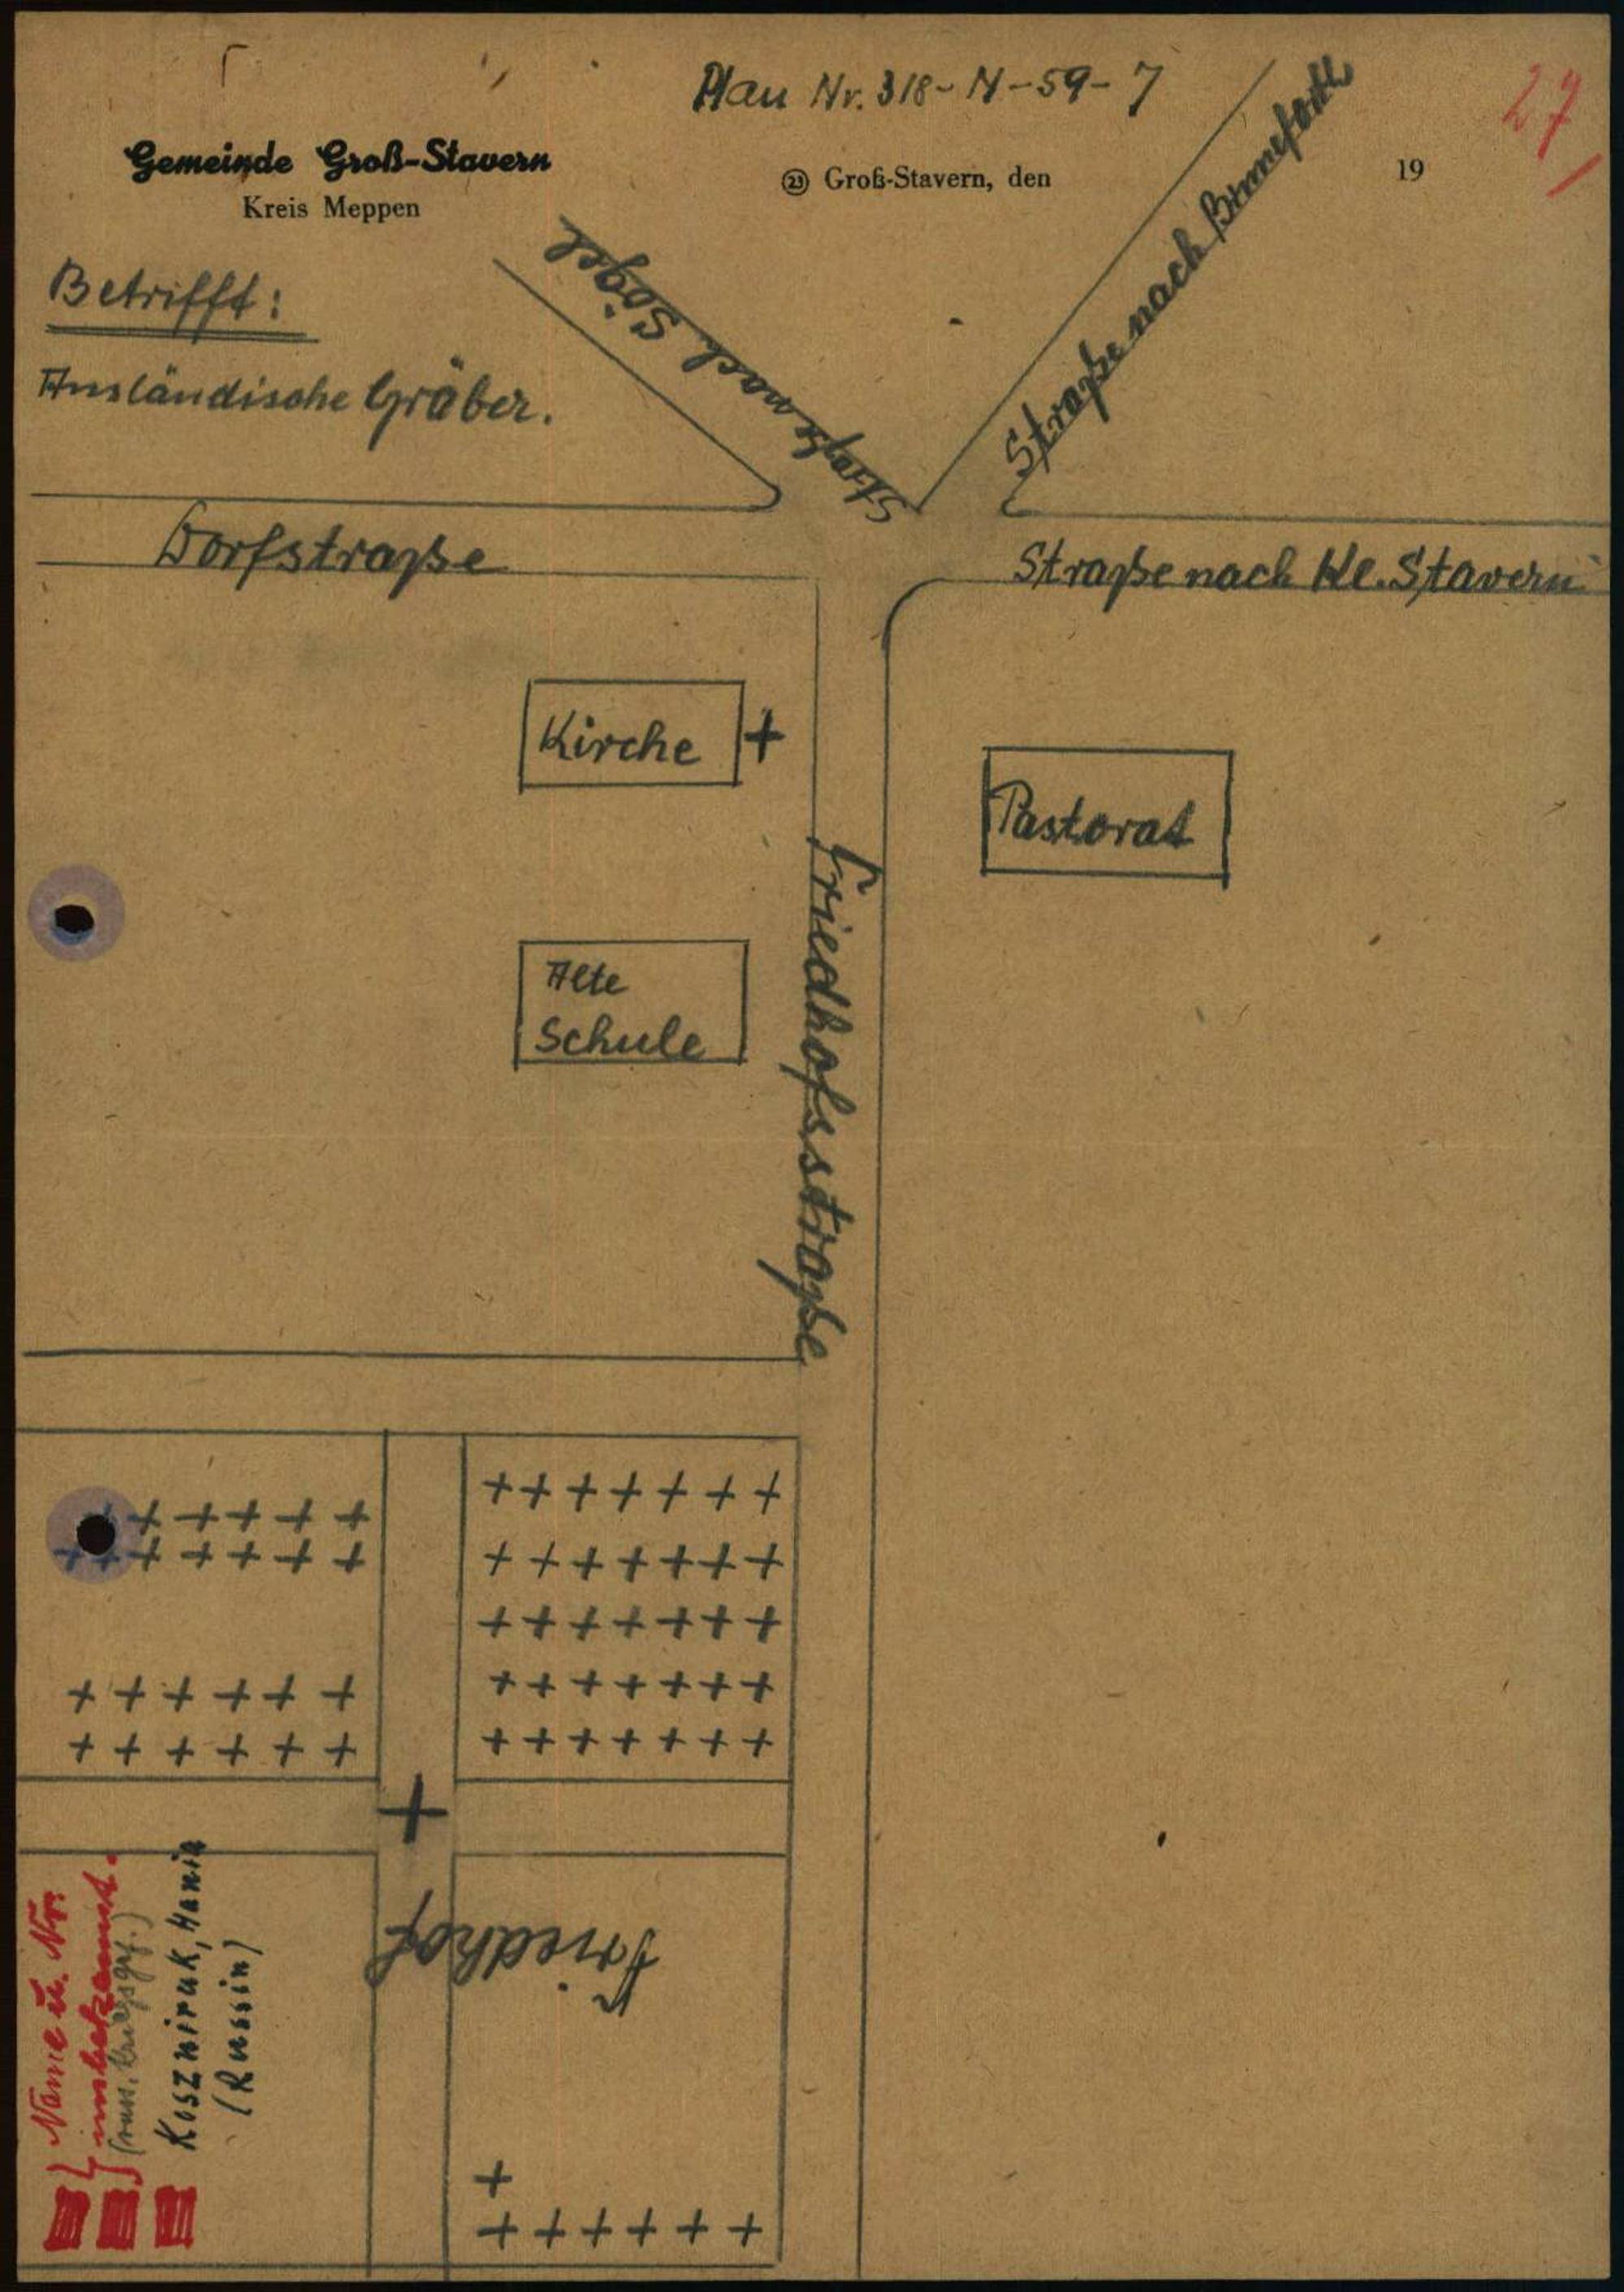 Plan Nr. 318-N-59-7
27
Gemeinde Groß-Stavern
Kreis Meppen
23 Groß-Stavern, den 19
Betrifft:
Ausländische Gräber.
Straße nach Sögel
Straße nach
Dorfstraße
Straße nach Kl. Stavern
Kirche
Pastorat
Alte
Schule
Friedhofsstraße
Friedhof
Name u. Nr.
unbekannt.
(russ. Kriegsgef.)
Koszniruk, Hania
(Russin)